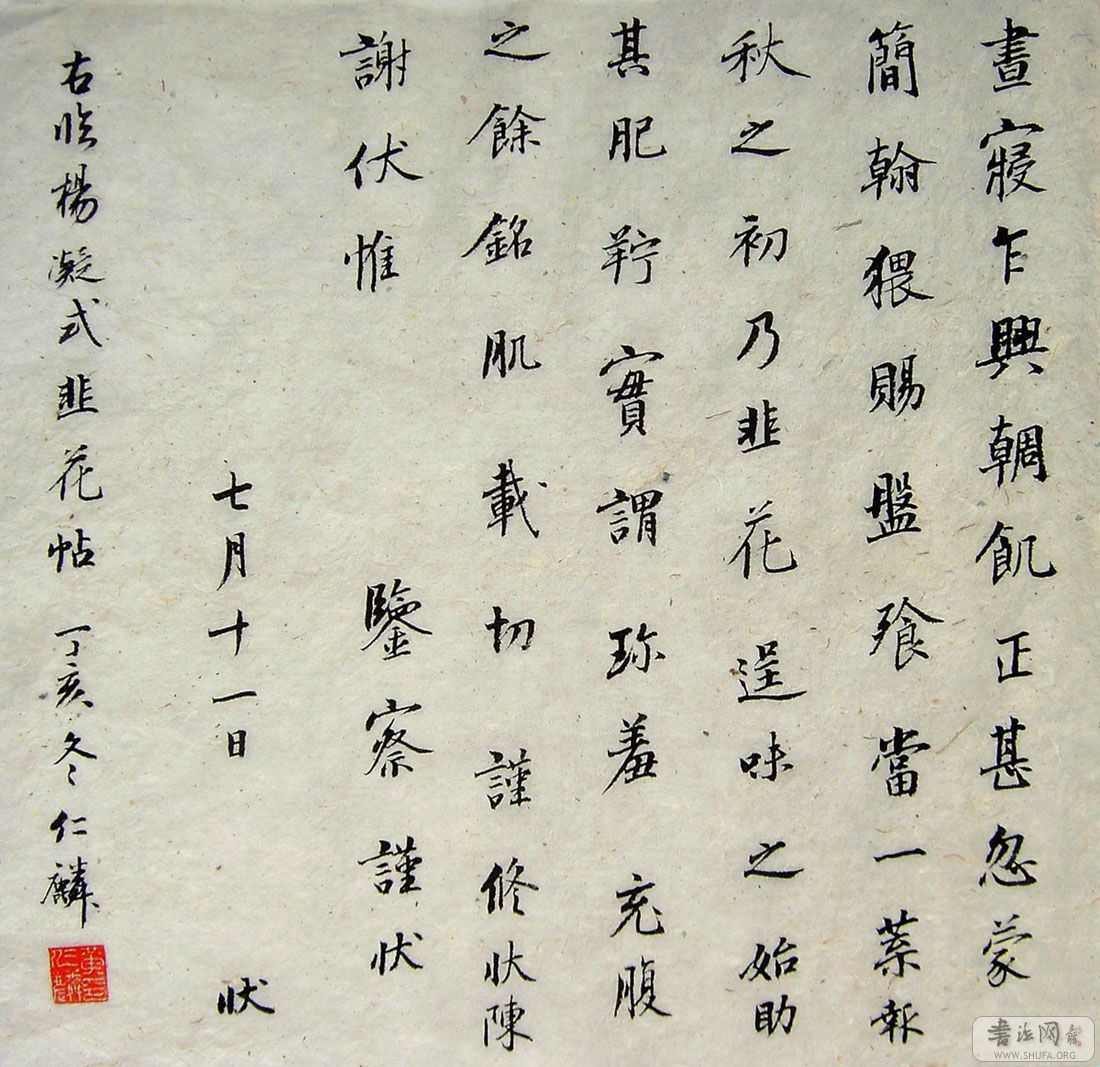 晝寢乍興輖飢正甚忽蒙
簡翰猥賜盤飧當一葉報
秋之初乃韭花逞味之始助
其肥羜實謂珍羞充腹
之餘銘肌載切謹修狀陳
謝伏惟鑒察謹狀
七月十一日狀
右臨楊凝式韭花帖丁亥冬仁麟
書法网
WWW.SHUFA.ORG